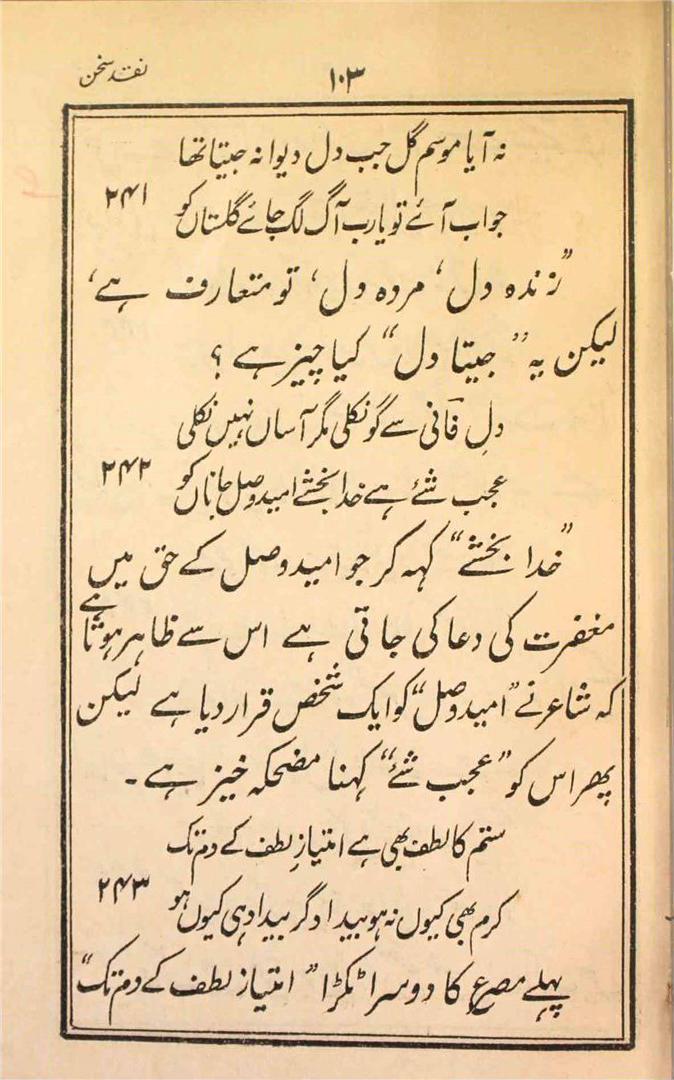 نقد سخن
۱۰۳
نہ آیا موسم گل جب دل دیوانہ جیتا تھا
۲۴۱
جواب آئے تو یارب آگ لگ جائے گلستاں کو
”زندہ دل‘ مردہ دل‘ تو متعارف ہے‘
لیکن یہ ”جیتا دل“ کیا چیز ہے؟
دلِ فانی سے گو نکلی مگر آساں نہیں نکلی
۲۴۲
عجب شئے ہے خدا بخشے امید وصل جاناں کو
”خدا بخشے“ کہہ کر جو امید وصل کے حق میں
مغفرت کی دعا کی جاتی ہے اس سے ظاہر ہوتا ہے
کہ شاعر نے ”امید وصل“ کو ایک شخص قرار دیا ہے لیکن
پھر اس کو ”عجب شئے“ کہنا مضحکہ خیز ہے۔
ستم کا لطف بھی ہے امتیازِ لطف کے دم تک
۲۴۳
کرم بھی کیوں نہ ہو بیداد گر بیداد ہی کیوں ہو
پہلے مصرع کا دوسرا ٹکڑا ”امتیاز لطف کے دم تک“